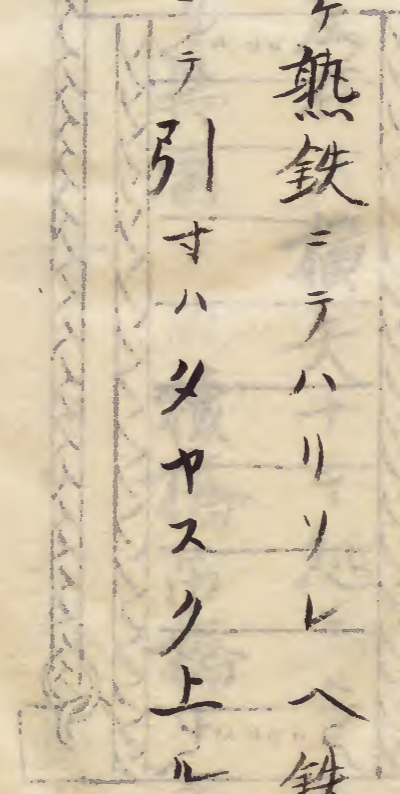 ケ熟鉄ニテハリソレヘ鉄
テ引寸ハタヤスク上ル